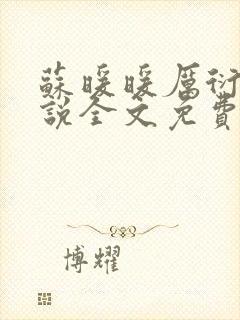 蘇暖暖厲衍
說全文免費
博耀